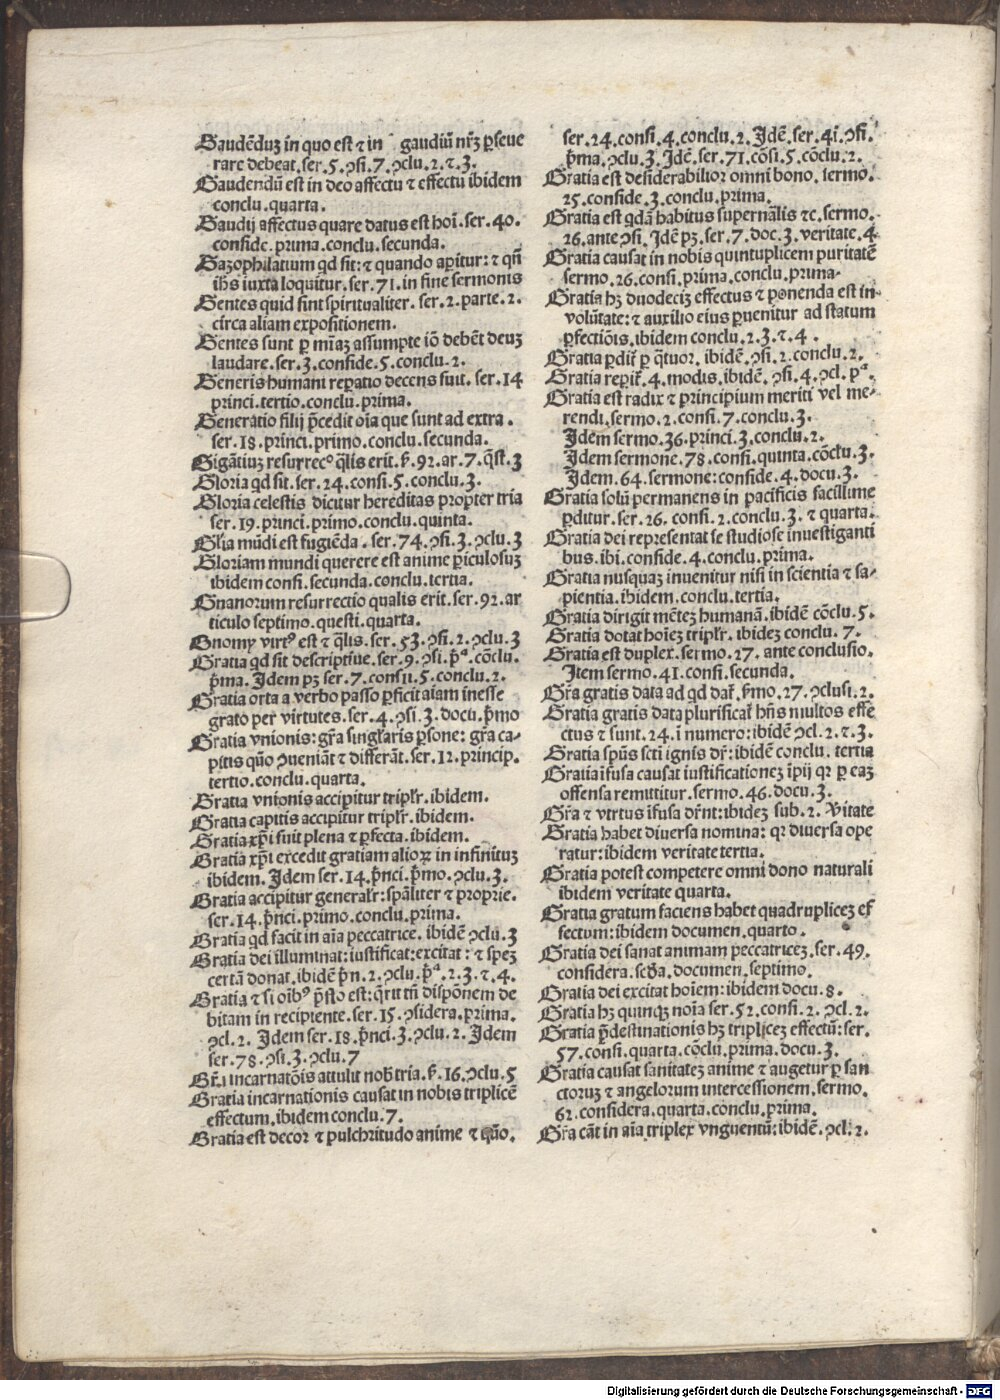 Gaudēduꝫ in quo est ⁊ in gaudiū nr̄ꝫ ꝑseue
rare debeat.ser.5.ↄsi.7.ↄclu.2.⁊.3.
Gaudendū est in deo affectu ⁊ effectu ibidem
conclu.quarta.
Gaudij affectus quare datus est hoī.ser.40.
conside.prima.conclu.secunda.
Gazophilatium qd sit:⁊ quando aꝑitur:⁊ qn̄
ih̄s iuxta loquitur.ser.71.in fine sermonis
Gentes quid sint spiritualiter.ser.2.parte.2.
circa aliam expositionem.
Gentes sunt ꝑ mīaꝫ assumpte iō debēt deuꝫ
laudare.ser.3.conside.5.conclu.2.
Generis humani reꝑatio decens fuit.ser.14
princi.tertio.conclu.prima.
Generatio filij p̄cedit oīa que sunt ad extra.
ser.18.princi.primo.conclu.secunda.
Gigātiuꝫ resurrecº q̄lis erit.ẜ.92.ar.7.q̄st.3
Gloria qd sit.ser.24.consi.5.conclu.3.
Gloria celestis dicitur hereditas propter tria
ser.19.princi.primo.conclu.quinta.
Gl̄ia mūdi est fugiēda.ser.74.ↄsi.3.ↄclu.3
Gloriam mundi querere est anime ꝑiculosuꝫ
ibidem consi.secunda.conclu.tertia.
Gnanorum resurrectio qualis erit.ser.92.ar
ticulo septimo.questi.quarta.
Gnomy virtꝰ est ⁊ q̄lis.ser.53.ↄsi.2.ↄclu.3
Gratia qd sit descriptiue.ser.9.ↄsi.p̄ª.cōclu.
p̄ma.Idem pꝫ ser.7.consi.5.conclu.2.
Gratia orta a verbo passo ꝑficit aīam inesse
grato per virtutes.ser.4.ↄsi.3.docu.p̄mo
Gratia vnionis:gr̄a singl̄aris ꝑsone:gr̄a ca-
pitis quō ↄueniāt ⁊ differāt.ser.12.princip.
tertio.conclu.quarta.
Gratia vnionis accipitur tripl̄r.ibidem.
Gratia capitis accipitur tripl̄r.ibidem.
Gratia xp̄i fuit plena ⁊ ꝑfecta.ibidem.
Gratia xp̄i excedit gratiam alioꝝ in infinituꝫ
ibidem.Idem ser.14.p̄nci.p̄mo.ↄclu.3.
Gratia accipitur general̄r:spāliter ⁊ proprie.
ser.14.p̄nci.primo.conclu.prima.
Gratia qd facit in aīa peccatrice.ibidē ↄclu.3
Gratia dei illuminat:iustificat:excitat:⁊ speꝫ
certā donat.ibidē p̄n.2.ↄclu.p̄ª.2.3.⁊.4.
Gratia ⁊ si oībꝰ p̄sto est:q̄rit tn̄ dispōnem de
bitam in recipiente.ser.15.ↄsidera.prima.
ↄcl.2. Idem ser.18.p̄nci.3.ↄclu.2. Idem
ser.78.ↄsi.3.ↄclu.7
Gr̄a incarnatōis attulit nob̄ tria.ẜ.16.ↄclu.5
Gratia incarnationis causat in nobis triplicē
effectum.ibidem conclu.7.
Gratia est decor ⁊ pulchritudo anime ⁊ quō.
ser.24.consi.4.conclu.2.Idē.ser.41.ↄsi.
p̄ma.ↄclu.3.Idē.ser.71.cōsi.5.cōclu.2.
Gratia est desiderabilior omni bono.sermo.
25.conside.3.conclu.prima.
Gratia est qdā habitus supernālis ⁊c.sermo.
26.ante ↄsi.Idē pꝫ.ser.7.doc.3.veritate.4
Gratia causat in nobis quintuplicem puritatē
sermo.26.consi.prima.conclu.prima.
Gratia hꝫ duodeciꝫ effectus ⁊ ponenda est in
volūtate:⁊ auxilio eius ꝑuenitur ad statum
ꝑfectiōis.ibidem conclu.2.3.⁊.4.
Gratia ꝑdit̄ ꝑ q̄tuor.ibidē.ↄsi.2.conclu.2.
Gratia reꝑit̄.4.modis.ibidē.ↄsi.4.ↄcl.pª.
Gratia est radix ⁊ principium meriti vel me-
rendi.sermo.2.consi.7.conclu.3.
Idem sermo.36.princi.3.conclu.2.
Idem sermone.78.consi.quinta.cōclu.3.
Idem.64.sermone:conside.4.docu.3.
Gratia solū permanens in pacificis facillime
ꝑditur.ser.26.consi.2.conclu.3.⁊ quarta.
Gratia dei representat se studiose inuestiganti
bus.ibi.conside.4.conclu.prima.
Gratia nusquaꝫ inuenitur nisi in scientia ⁊ sa-
pientia.ibidem.conclu.tertia.
Gratia dirigit mēteꝫ humanā.ibidē cōclu.5.
Gratia dotat hoīeꝫ tripl̄r.ibideꝫ conclu.7.
Gratia est duplex.sermo.27.ante conclusio.
Item sermo.41.consi.secunda.
Gr̄a gratis data ad qd dat̄.ẜmo.27.ↄclusi.2.
Gratia gratis data plurificat̄ hn̄s multos effe
ctus ⁊ sunt.24.ī numero:ibidē ↄcl.2.⁊.3.
Gratia sp̄us sc̄ti ignis dr̄:ibidē conclu.tertia
Gratia īfusa causat iustificationeꝫ īpij qꝛ ꝑ eaꝫ
offensa remittitur.sermo.46.docu.3.
Gr̄a ⁊ virtus īfusa dr̄nt:ibideꝫ sub.2.Vitate
Gratia habet diuersa nomina:qꝛ diuersa ope
ratur:ibidem veritate tertia.
Gratia potest competere omni dono naturali
ibidem veritate quarta.
Gratia gratum faciens habet quadrupliceꝫ ef
fectum:ibidem documen.quarto.
Gratia dei sanat animam peccatriceꝫ.ser.49.
considera.scd̄a.documen.septimo.
Gratia dei excitat hoīem:ibidem docu.8.
Gratia hꝫ quinqꝫ noīa ser.52.consi.2.ↄcl.2.
Gratia p̄destinationis hꝫ tripliceꝫ effectū:ser.
57.consi.quarta.cōclu.prima.docu.3.
Gratia causat sanitateꝫ anime ⁊ augetur ꝑ san
ctoruꝫ ⁊ angelorum intercessionem.sermo.
62.considera.quarta.conclu.prima.
Gr̄a cāt in aīa triplex vnguentū:ibidē.ↄcl.2.
Digitalisierung gefördert durch die Deutsche Forschungsgemeinschaft - DFG